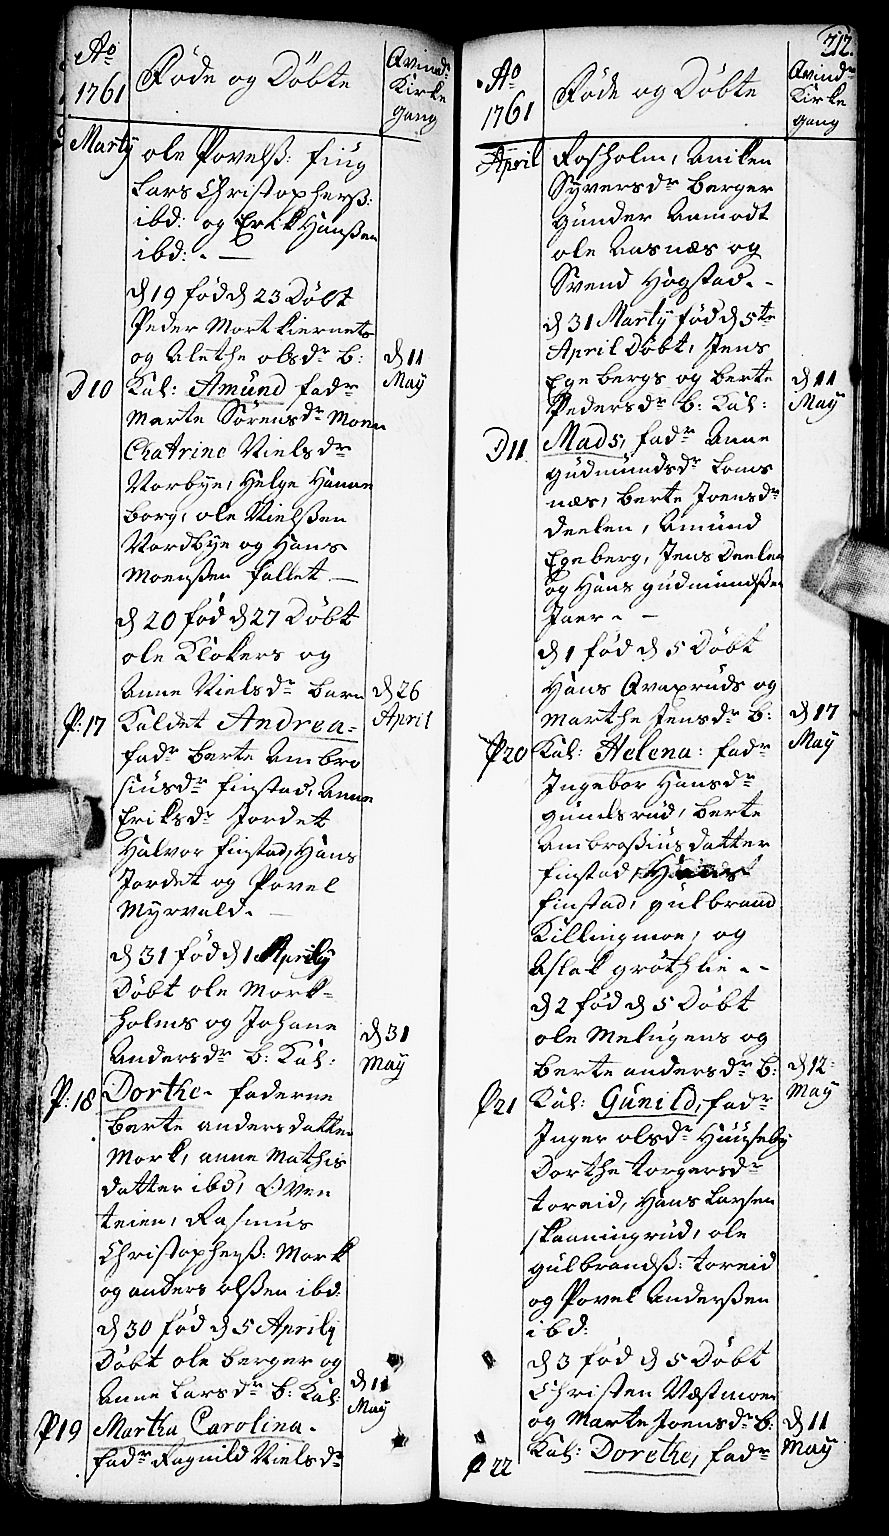 Ao
1761
Føde og Døbte
Qvind:
Kirke
gang
Marty
ole Povelß: fiug
Lars Christopherß:
ibd: og Erik Hanßen
ibd: . —
d 19 fød d 23 Døbt
Peder Mortkiernets
og Alethe olsdr b:
d 11
May
D 10
Kal: Amund fadr
Marte Sørensdr Moen
Chatrine Nielsdr
Norbye, Helge Hanne
borg, ole Nielßen
Nordbye og Hans
Moenßen fallet —
d 20 fød d 27 Døbt
ole Klokers og
Anne Nielsdr barn
d 26
April
P: 17
Kaldet Andrea-
fadr berte Ambro
siusdr finstad, Anne
Eriksdr Jordet
Halvor finstad, Hans
Jordet og Povel
Myrvald. —
d 31 fød d 1 Aprily
Døbt ole Mork-
holms og Johane
Andersdr b: Kal:
d 31
May
P: 18
Dorthe. faderne
berte andersdatter
Mork, anne Mathis
datter ibd, Oven
teien, Rasmus
Christopherß: Mork
og anders olßen ibd.
d 30 fød d 5 Aprily
Døbt ole berger og
Anne Larsdr b: Kal:
d 11
May
P 19
Martha Carolina.
fadr Ragnild Nielsdr
212.
Ao
1761
Føde og Døbte
Qvindr
Kirke
gang
April
Rosholm, Aniken
Syversdr berger
Gunder Aamodt
ole Aasnæs og
Svend Høgstad. -
d 31 Marty fød d 5te
April Døbt, Jens
Egebergs og berte
Pedersdr b: Kal:
d 11
May
D 11
Mads, fadr Anne
gudmundsdr Loms
næs, berte Joensdr
Deelen, Amund
Egeberg, Jens Deelen
og Hans gudmundßen
Jaer. —
d 1 fød d 5 Døbt
Hans Qvapruds og
Marthe Jensdr b:
d 17
May
P 20
Kal: Helena: fadr
Ingebor Hansdr
gundsrud, berte
Ambroßius datter
finstad,
finstad, gulbrand
Killingmoe, og
Aslak grøthlie. -
d 2 fød d 5 Døbt
ole Melugens og
berte andersdr b:
d 12
May
P 21
Kal: Gunild, fadr
Inger olsdr Huuseby
Dorthe torgersdr
toreid, Hans Larsen
skaaningrud, ole
gulbrandß: toreid
og Povel Anderßen
ibd:
d 3 fød d 5 Døbt
Christen Væstmoen
og Marte Joensdr b:
d 11
May
P 22
Kal: Dorethe, fadr